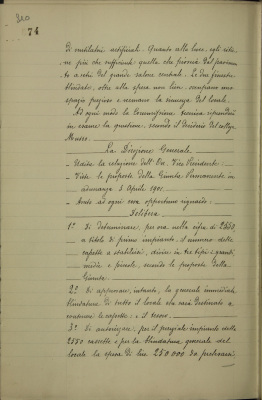 310
74
di ventilatori artificiali. Quanto alla luce, egli ritie-
ne più che sufficiente quella che pioverà dal
a vetri del grande salone centrale. Le due finestre
blindate, oltre alla spesa non lieve, occupano uno
spazio prezioso e scemano la sicurezza del locale.
Ad ogni modo la Commissione
in esame la questione, secondo il desiderio del collega
La Direzione Generale
Udita la relazione dell'On. Vice Presidente
Viste le proposte della Giunta Permanente in
adunanza 3 Aprile 1901
Avuto ad ogni cosa opportuno riguardo
Delibera
1º Di determinare, per ora, nella cifra di 2550,
a titolo di primo impianto, il numero delle
cassette a stabilirsi, divise in tre tipi: grandi,
medie e piccole, secondo le proposte della
Giunta.
2º Di approvare, intanto, la generale immediata
blindatura di tutto il locale che sarà destinato a
contenere le cassette e il tesoro.
3º Di autorizzare, per il parziale impianto delle
2550 cassette e per la blindatura generale del
locale la spesa di lire 250.000 da prelevarsi